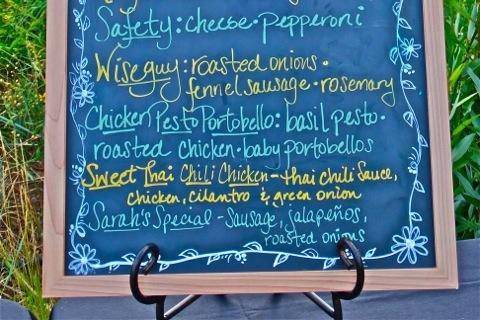 Safety: cheese · pepperoni
Wiseguy: roasted onions ·
fennel sausage · rosemary
Chicken Pesto Portobello: basil pesto ·
roasted chicken · baby portobellos
Sweet Thai Chili Chicken - thai chili sauce,
chicken, cilantro & green onion
Sarah's Special - Sausage, jalapeños,
roasted onions